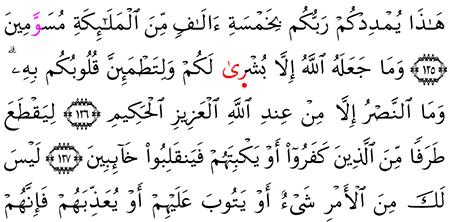 هَـٰذَا يُمْدِدْكُمْ رَبُّكُم بِخَمْسَةِ ءَالَـٰفٍ مِّنَ ٱلْمَلَـٰٓئِكَةِ مُسَوَّمِينَ
﴿١٢٥﴾ وَمَا جَعَلَهُ ٱللَّهُ إِلَّا بُشْرِىٰ لَكُمْ وَلِتَطْمَئِنَّ قُلُوبُكُم بِهِۦۗ
وَمَا ٱلنَّصْرُ إِلَّا مِنْ عِندِ ٱللَّهِ ٱلْعَزِيزِ ٱلْحَكِيمِ ﴿١٢٦﴾ لِيَقْطَعَ
طَرَفًا مِّنَ ٱلَّذِينَ كَفَرُوٓا۟ أَوْ يَكْبِتَهُمْ فَيَنقَلِبُوا۟ خَآئِبِينَ ﴿١٢٧﴾ لَيْسَ
لَكَ مِنَ ٱلْأَمْرِ شَىْءٌ أَوْ يَتُوبَ عَلَيْهِمْ أَوْ يُعَذِّبَهُمْ فَإِنَّهُمْ